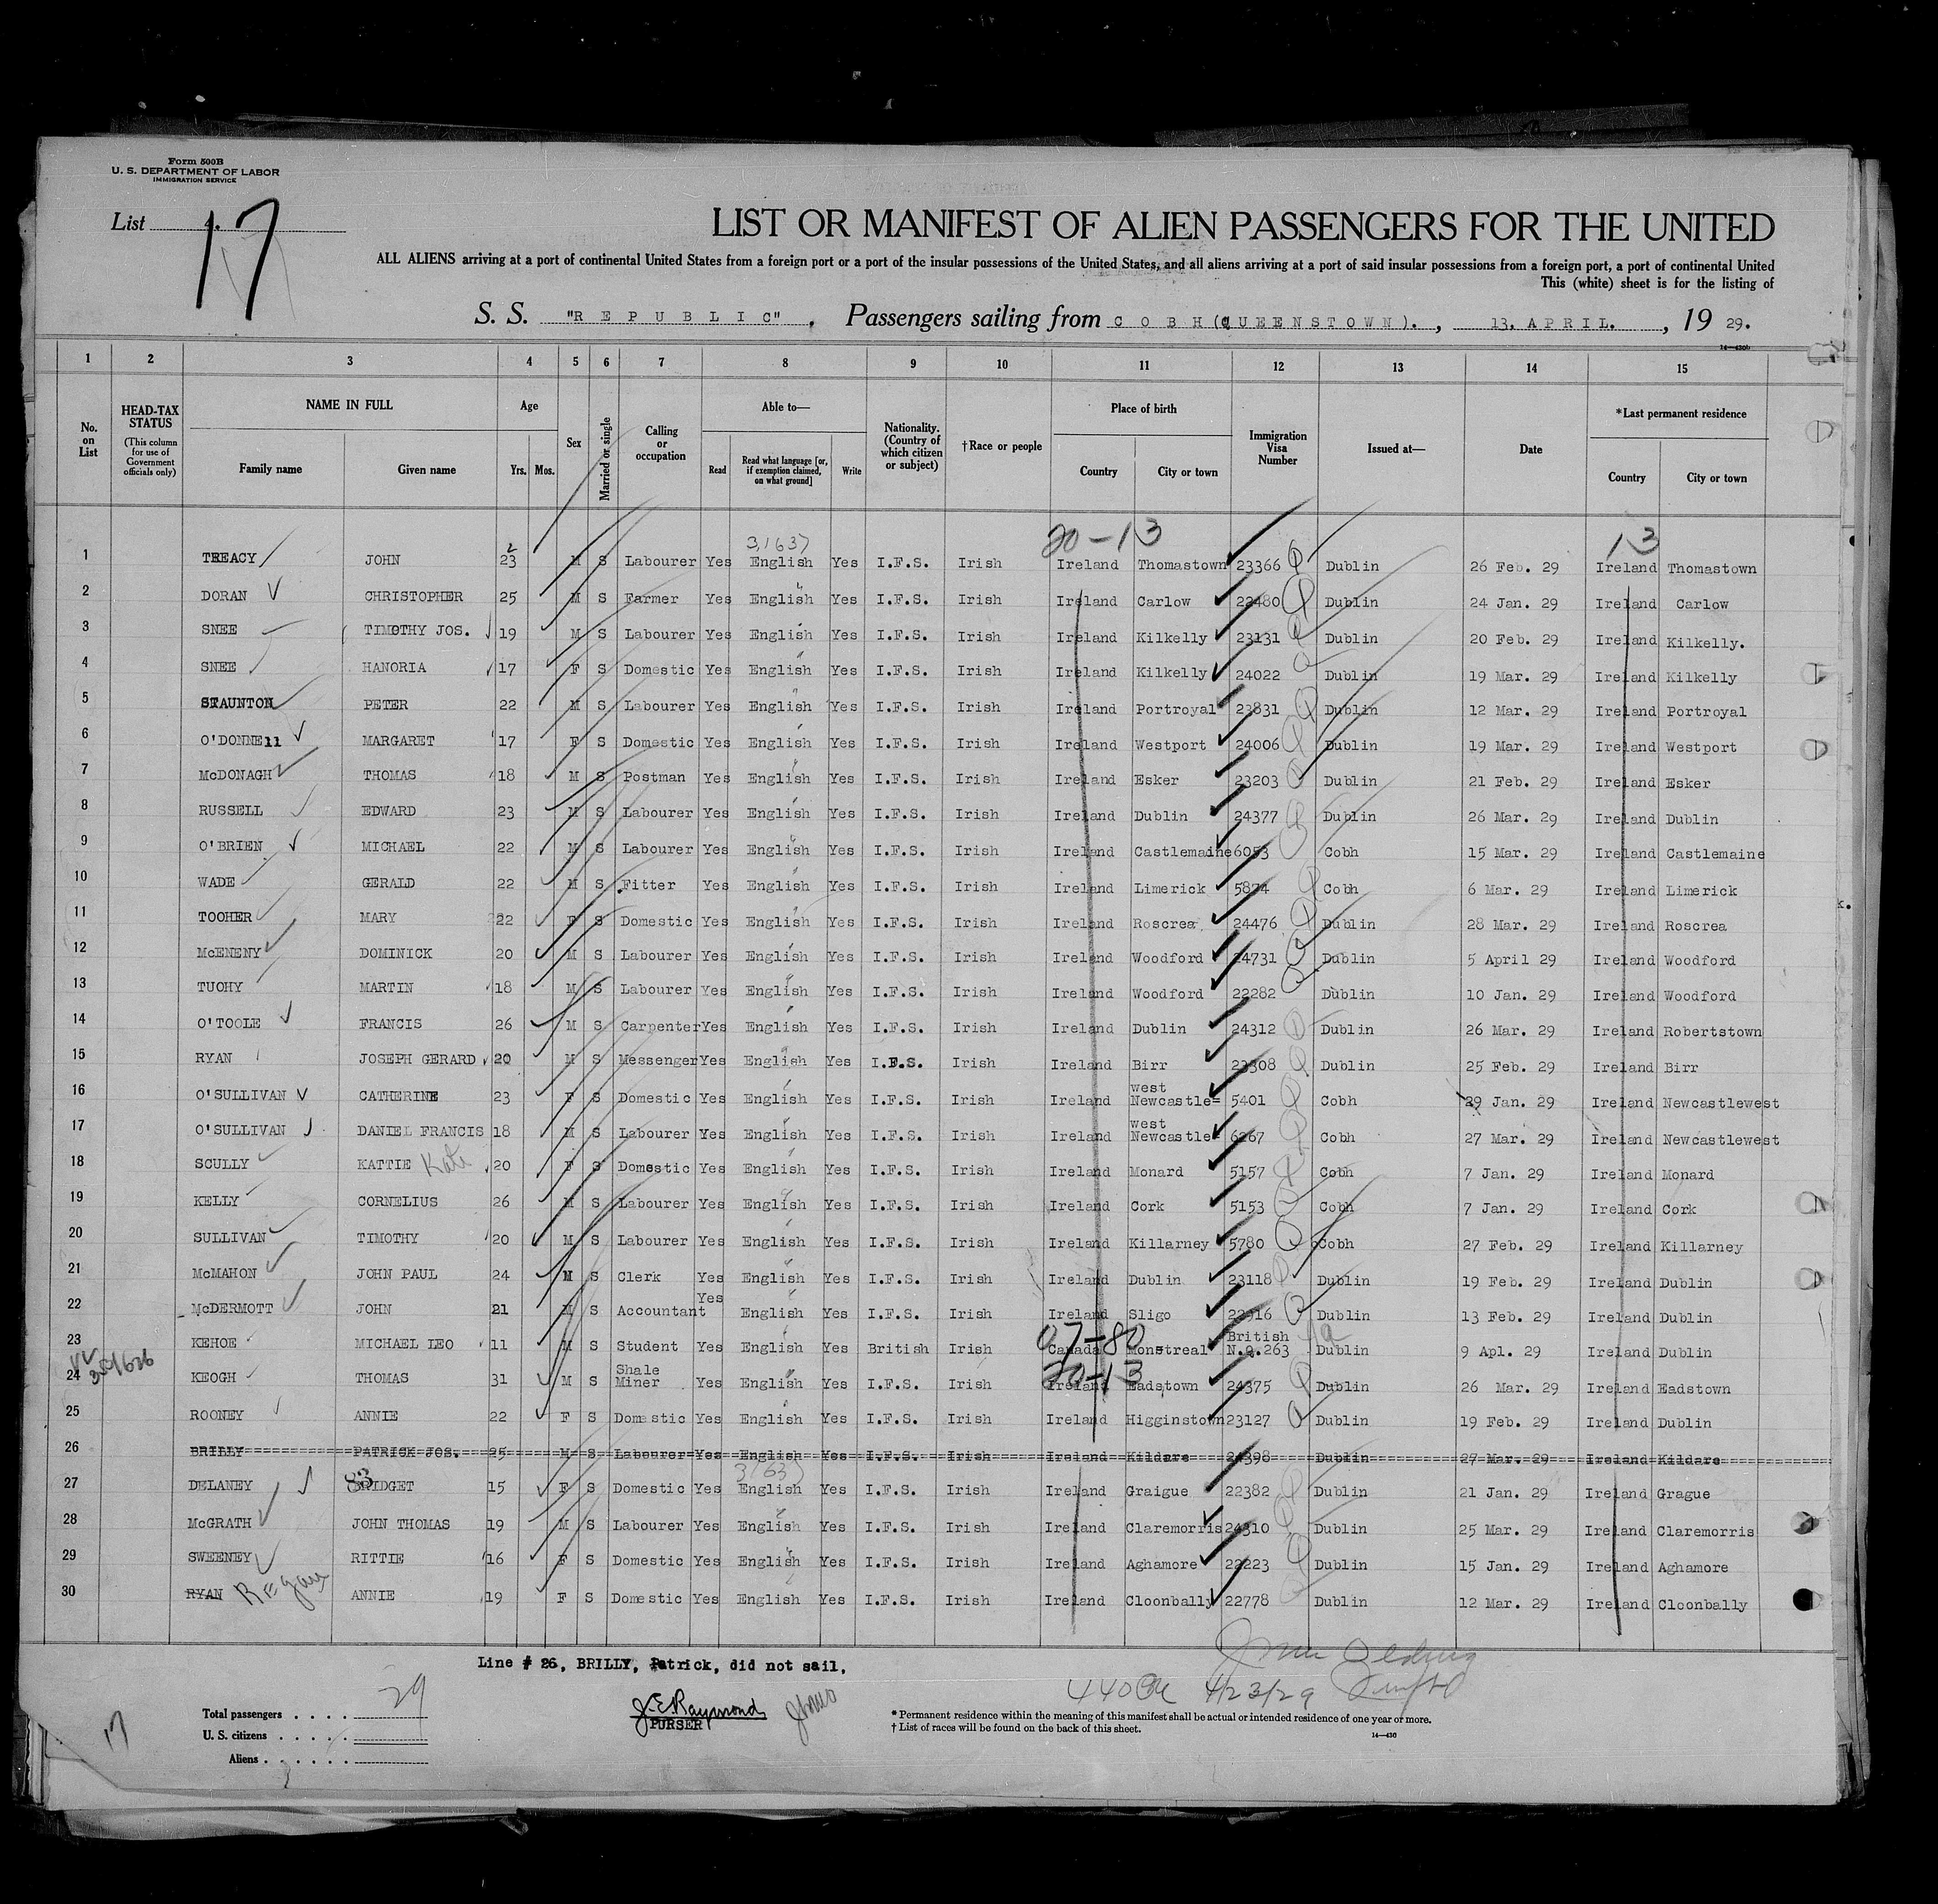 Form 500B
U. S. DEPARTMENT OF LABOR
IMMIGRATION SERVICE
List 4.
17
LIST OR MANIFEST OF ALIEN PASSENGERS FOR THE UNITED
ALL ALIENS arriving at a port of continental United States from a foreign port or a port of the insular possessions of the United States, and all aliens arriving at a port of said insular possessions from a foreign port, a port of continental United
This (white) sheet is for the listing of
S. S. "REPUBLIC", Passengers sailing from COBH (QUEENSTOWN)., 13, APRIL., 19 29.
14—430b
1 2 3 4 5 6 7 8 9 10 11 12 13 14 15
No. on List HEAD-TAX STATUS (This column for use of Government officials only) NAME IN FULL Family name Given name Age Yrs. Mos. Sex Married or single Calling or occupation Able to— Read Read what language [or, if exemption claimed, on what ground] Write Nationality. (Country of which citizen or subject) †Race or people Place of birth Country City or town Immigration Visa Number Issued at— Date *Last permanent residence Country City or town
20-13 13
1 TREACY JOHN 23 M S Labourer Yes English Yes I.F.S. Irish Ireland Thomastown 23366 Dublin 26 Feb. 29 Ireland Thomastown
2 DORAN CHRISTOPHER 25 M S Farmer Yes English Yes I.F.S. Irish Ireland Carlow 22480 Dublin 24 Jan. 29 Ireland Carlow
3 SNEE TIMOTHY JOS. 19 M S Labourer Yes English Yes I.F.S. Irish Ireland Kilkelly 23131 Dublin 20 Feb. 29 Ireland Kilkelly.
4 SNEE HANORIA 17 F S Domestic Yes English Yes I.F.S. Irish Ireland Kilkelly 24022 Dublin 19 Mar. 29 Ireland Kilkelly
5 STAUNTON PETER 22 M S Labourer Yes English Yes I.F.S. Irish Ireland Portroyal 23831 Dublin 12 Mar. 29 Ireland Portroyal
6 O'DONNEll MARGARET 17 F S Domestic Yes English Yes I.F.S. Irish Ireland Westport 24006 Dublin 19 Mar. 29 Ireland Westport
7 McDONAGH THOMAS 18 M S Postman Yes English Yes I.F.S. Irish Ireland Esker 23203 Dublin 21 Feb. 29 Ireland Esker
8 RUSSELL EDWARD 23 M S Labourer Yes English Yes I.F.S. Irish Ireland Dublin 24377 Dublin 26 Mar. 29 Ireland Dublin
9 O'BRIEN MICHAEL 22 M S Labourer Yes English Yes I.F.S. Irish Ireland Castlemaine 6053 Cobh 15 Mar. 29 Ireland Castlemaine
10 WADE GERALD 22 M S Fitter Yes English Yes I.F.S. Irish Ireland Limerick 5874 Cobh 6 Mar. 29 Ireland Limerick
11 TOOHER MARY 22 F S Domestic Yes English Yes I.F.S. Irish Ireland Roscrea 24476 Dublin 28 Mar. 29 Ireland Roscrea
12 McENENY DOMINICK 20 M S Labourer Yes English Yes I.F.S. Irish Ireland Woodford 24731 Dublin 5 April 29 Ireland Woodford
13 TUOHY MARTIN 18 M S Labourer Yes English Yes I.F.S. Irish Ireland Woodford 22282 Dublin 10 Jan. 29 Ireland Woodford
14 O'TOOLE FRANCIS 26 M S Carpenter Yes English Yes I.F.S. Irish Ireland Dublin 24312 Dublin 26 Mar. 29 Ireland Robertstown
15 RYAN JOSEPH GERARD 20 M S Messenger Yes English Yes I.F.S. Irish Ireland Birr 23308 Dublin 25 Feb. 29 Ireland Birr
16 O'SULLIVAN CATHERINE 23 F S Domestic Yes English Yes I.F.S. Irish Ireland Newcastle= west 5401 Cobh 29 Jan. 29 Ireland Newcastlewest
17 O'SULLIVAN DANIEL FRANCIS 18 M S Labourer Yes English Yes I.F.S. Irish Ireland Newcastle west 6267 Cobh 27 Mar. 29 Ireland Newcastlewest
18 SCULLY KATTIE Kate 20 F S Domestic Yes English Yes I.F.S. Irish Ireland Monard 5157 Cobh 7 Jan. 29 Ireland Monard
19 KELLY CORNELIUS 26 M S Labourer Yes English Yes I.F.S. Irish Ireland Cork 5153 Cobh 7 Jan. 29 Ireland Cork
20 SULLIVAN TIMOTHY 20 M S Labourer Yes English Yes I.F.S. Irish Ireland Killarney 5780 Cobh 27 Feb. 29 Ireland Killarney
21 McMAHON JOHN PAUL 24 M S Clerk Yes English Yes I.F.S. Irish Ireland Dublin 23118 Dublin 19 Feb. 29 Ireland Dublin
22 McDERMOTT JOHN 21 M S Accountant Yes English Yes I.F.S. Irish Ireland Sligo 22916 Dublin 13 Feb. 29 Ireland Dublin
07-80
23 KEHOE MICHAEL LEO 11 M S Student Yes English Yes British Irish Canada Monstreal British N.Q.263 Dublin 9 Apl. 29 Ireland Dublin
20-13
24 KEOGH THOMAS 31 M S Shale Miner Yes English Yes I.F.S. Irish Ireland Eadstown 24375 Dublin 26 Mar. 29 Ireland Eadstown
25 ROONEY ANNIE 22 F S Domestic Yes English Yes I.F.S. Irish Ireland Higginstown 23127 Dublin 19 Feb. 29 Ireland Dublin
26 BRILLY PATRICK JOS. 25 M S Labourer Yes English Yes I.F.S. Irish Ireland Kildare 24398 Dublin 27 Mar. 29 Ireland Kildare
27 DELANEY BRIDGET 15 F S Domestic Yes English Yes I.F.S. Irish Ireland Graigue 22382 Dublin 21 Jan. 29 Ireland Grague
28 McGRATH JOHN THOMAS 19 M S Labourer Yes English Yes I.F.S. Irish Ireland Claremorris 24310 Dublin 25 Mar. 29 Ireland Claremorris
29 SWEENEY RITTIE 16 F S Domestic Yes English Yes I.F.S. Irish Ireland Aghamore 22223 Dublin 15 Jan. 29 Ireland Aghamore
30 RYAN Regan ANNIE 19 F S Domestic Yes English Yes I.F.S. Irish Ireland Cloonbally 22778 Dublin 12 Mar. 29 Ireland Cloonbally
Line # 26, BRILLY, Patrick, did not sail.
Total passengers . . . . 29
U. S. citizens . . . . .
Aliens . . . . . .
17
J.E. Raymond
PURSER
4/23/29
* Permanent residence within the meaning of this manifest shall be actual or intended residence of one year or more.
† List of races will be found on the back of this sheet.
14—430